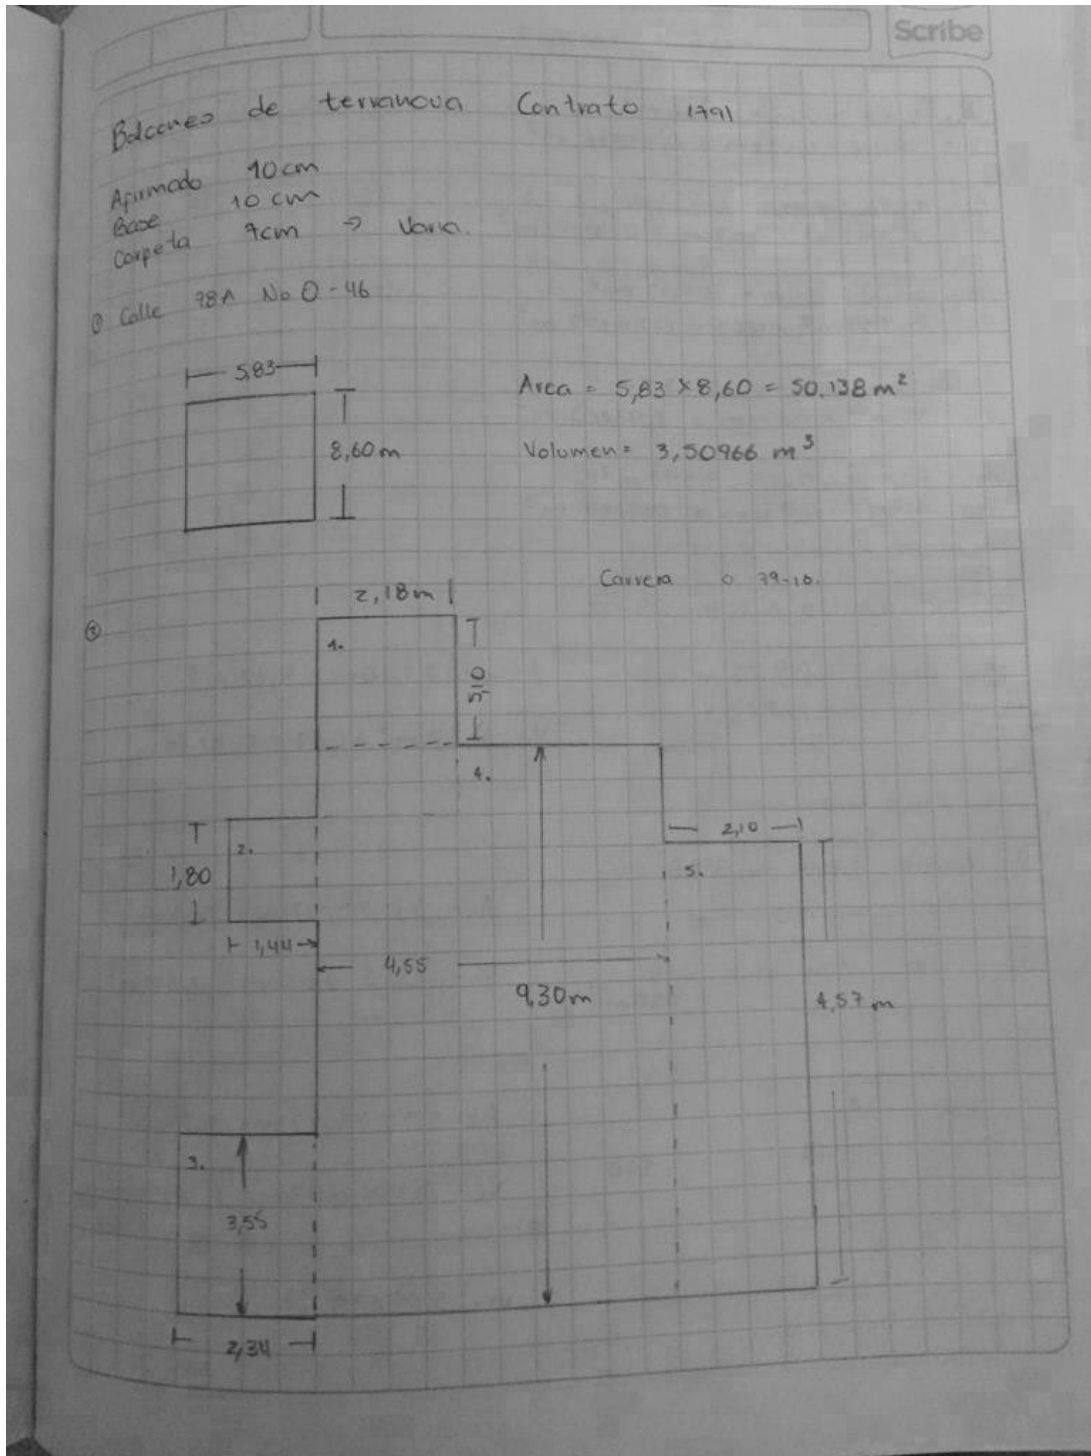 Scribe
Balcones de terranova Contrato 1791
Afirmado 10 cm
Base 10 cm
Carpeta 7cm → Varia.
① Calle 78A No 0-46
5,83
8,60 m
Area = 5,83 x 8,60 = 50.138 m²
Volumen = 3,50966 m³
Carrera 0 79-10.
②
2,18 m
1.
5,10
4.
2,10
2.
1,80
5.
1,44
4,55
9,30 m
4,57 m
3.
3,55
2,34